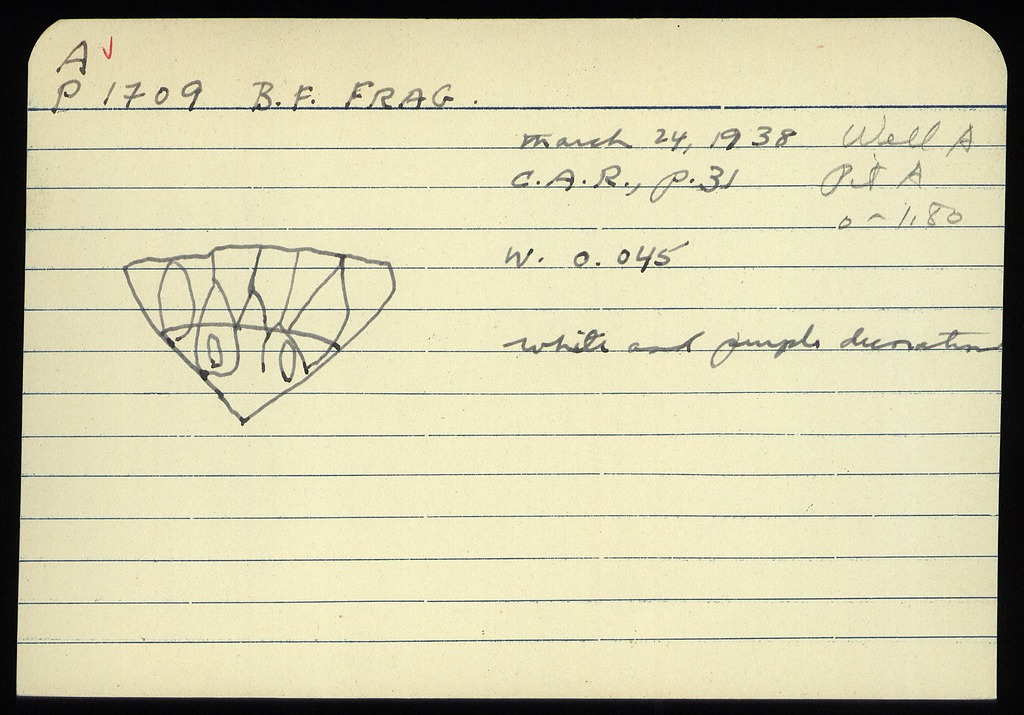 A ✓
P 1709 B.F. FRAG.
March 24, 1938 Well A
C.A.R., p.31 Pit A
0-1.80
W. 0.045
white and purple decoration